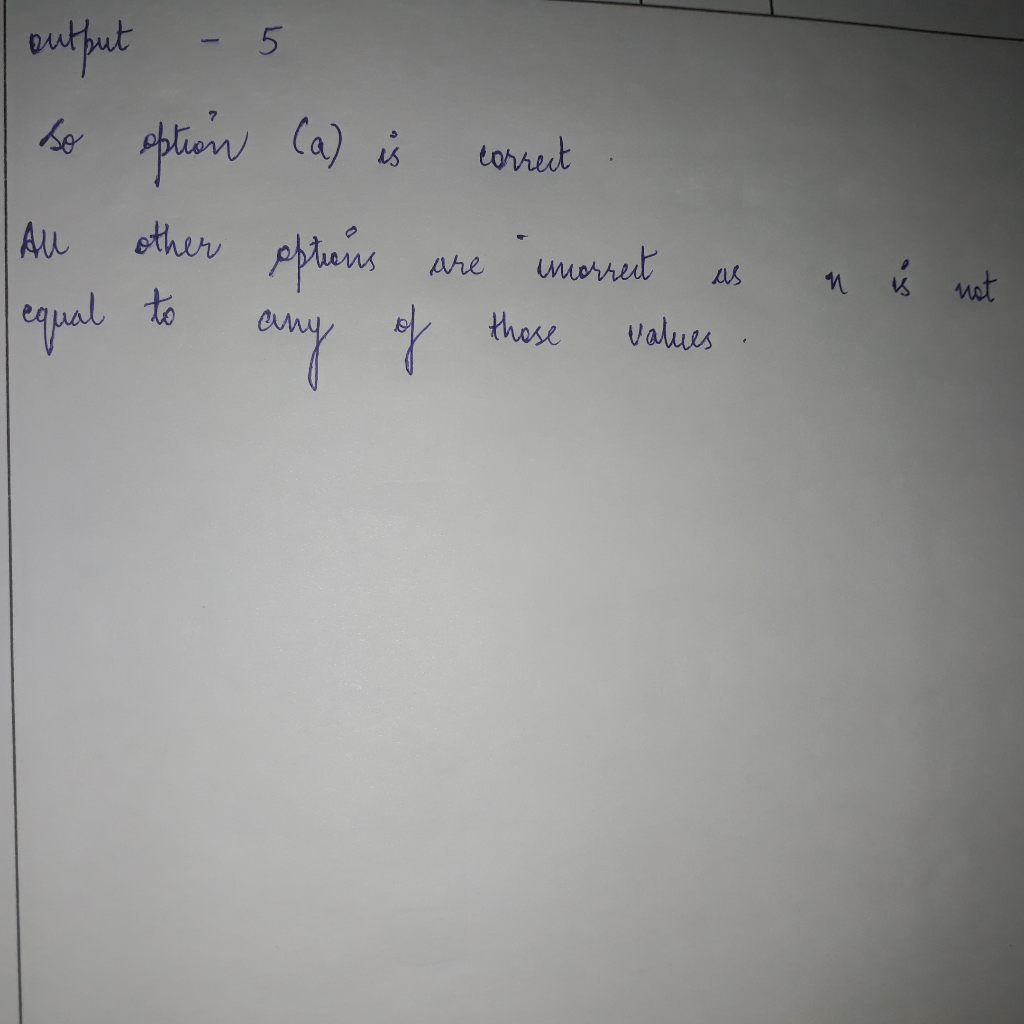 output - 5
So option (a) is correct.
All other options are incorrect as n is not
equal to any of those values.